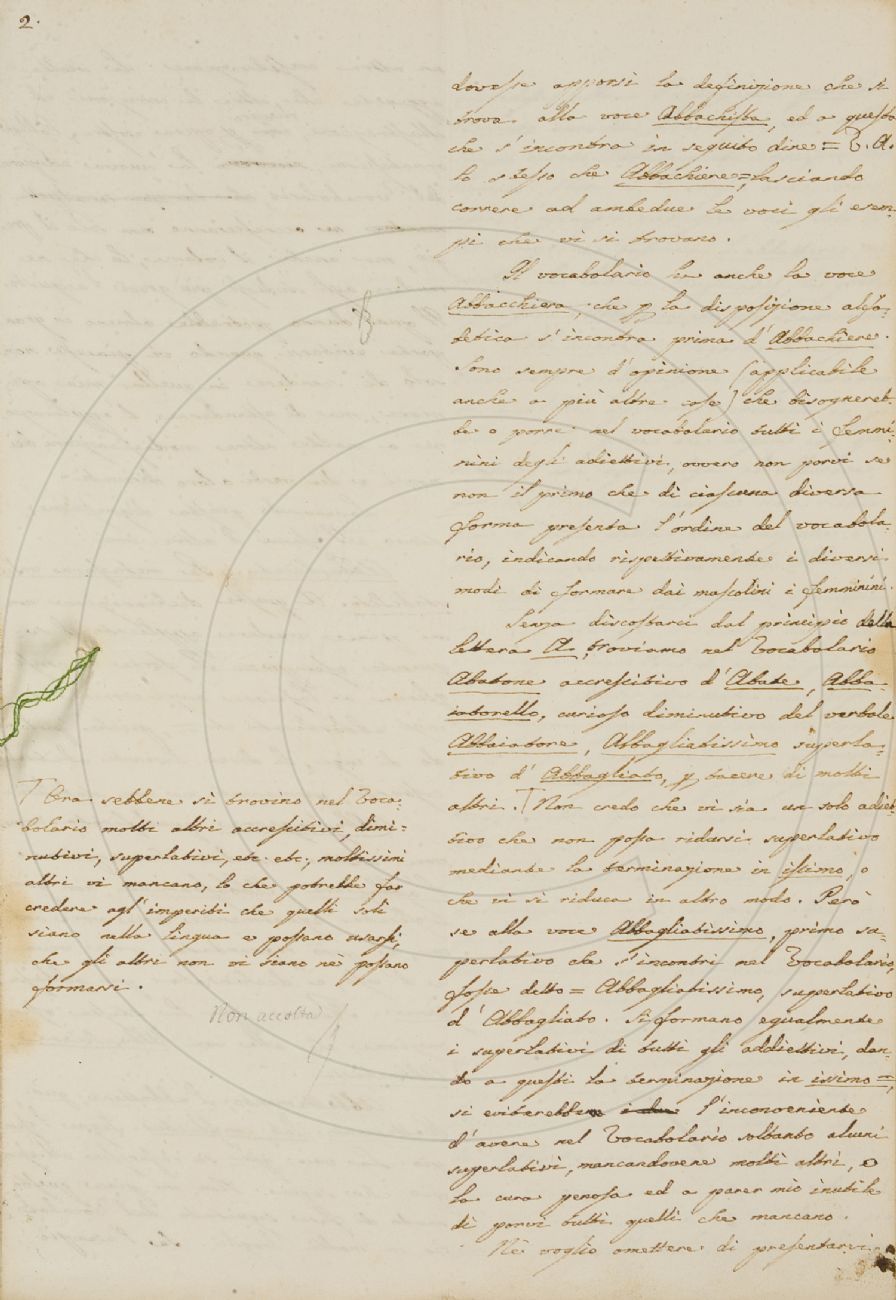 2.
dovesse apporsi la definizione che si
trova alla voce Abbachista, ed a questa
che s'incontra in seguito dire = V. A.
lo stesso che Abbachiere =, lasciando
correre ad ambedue le voci gli esem-
pi che vi si trovano.
Il vocabolario ha anche la voce
Abbacchiera, che p la disposizione alfa-
betica s'incontra prima d'Abbachiere.
Sono sempre d'opinione (applicabile
anche a più altre cose) che bisognereb-
be o porre nel vocabolario tutti i femmi-
nini degli adiettivi, ovvero non porvi se
non il primo che di ciascuna diversa
forma presenta l'ordine del vocabola-
rio, indicando rispettivamente i diversi
modi di formare dai mascolini i femminini.
Senza discostarci dal principio della
lettera A. troviamo nel Vocabolario
Abatone accrescitivo d'Abate, Abba-
iatorello, curioso diminutivo del verbale
Abbaiatore, Abbagliatissimo superla-
tivo d'Abbagliato, p tacere di molti
altri. T Non credo che vi sia un solo adiet-
tivo che non possa ridursi superlativo
mediante la terminazione in issimo, o
che vi si riduca in altro modo. Però
se alla voce Abbagliatissimo, primo su-
perlativo che s'incontri nel Vocabolario,
fosse detto = Abbagliatissimo, superlativo
d'Abbagliato. Si formano egualmente
i superlativi di tutti gli addiettivi, dan-
do a questi la terminazione in issimo =,
si eviterebbe l'inconveniente
d'avere nel Vocabolario soltanto alcuni
superlativi, mancandovene molti altri, o
la cura penosa ed a parer mio inutile
di porvi tutti quelli che mancano.
Nè voglio omettere di presentarvi
T Ora sebbene si trovino nel Voca-
bolario molti altri accrescitivi, dimi-
nutivi, superlativi, etc. etc., moltissimi
altri vi mancano, lo che potrebbe far
credere agl'imperiti che quelli soli
siano nella lingua e possano usarsi,
che gli altri non vi siano nè possano
formarsi.
Non accolta